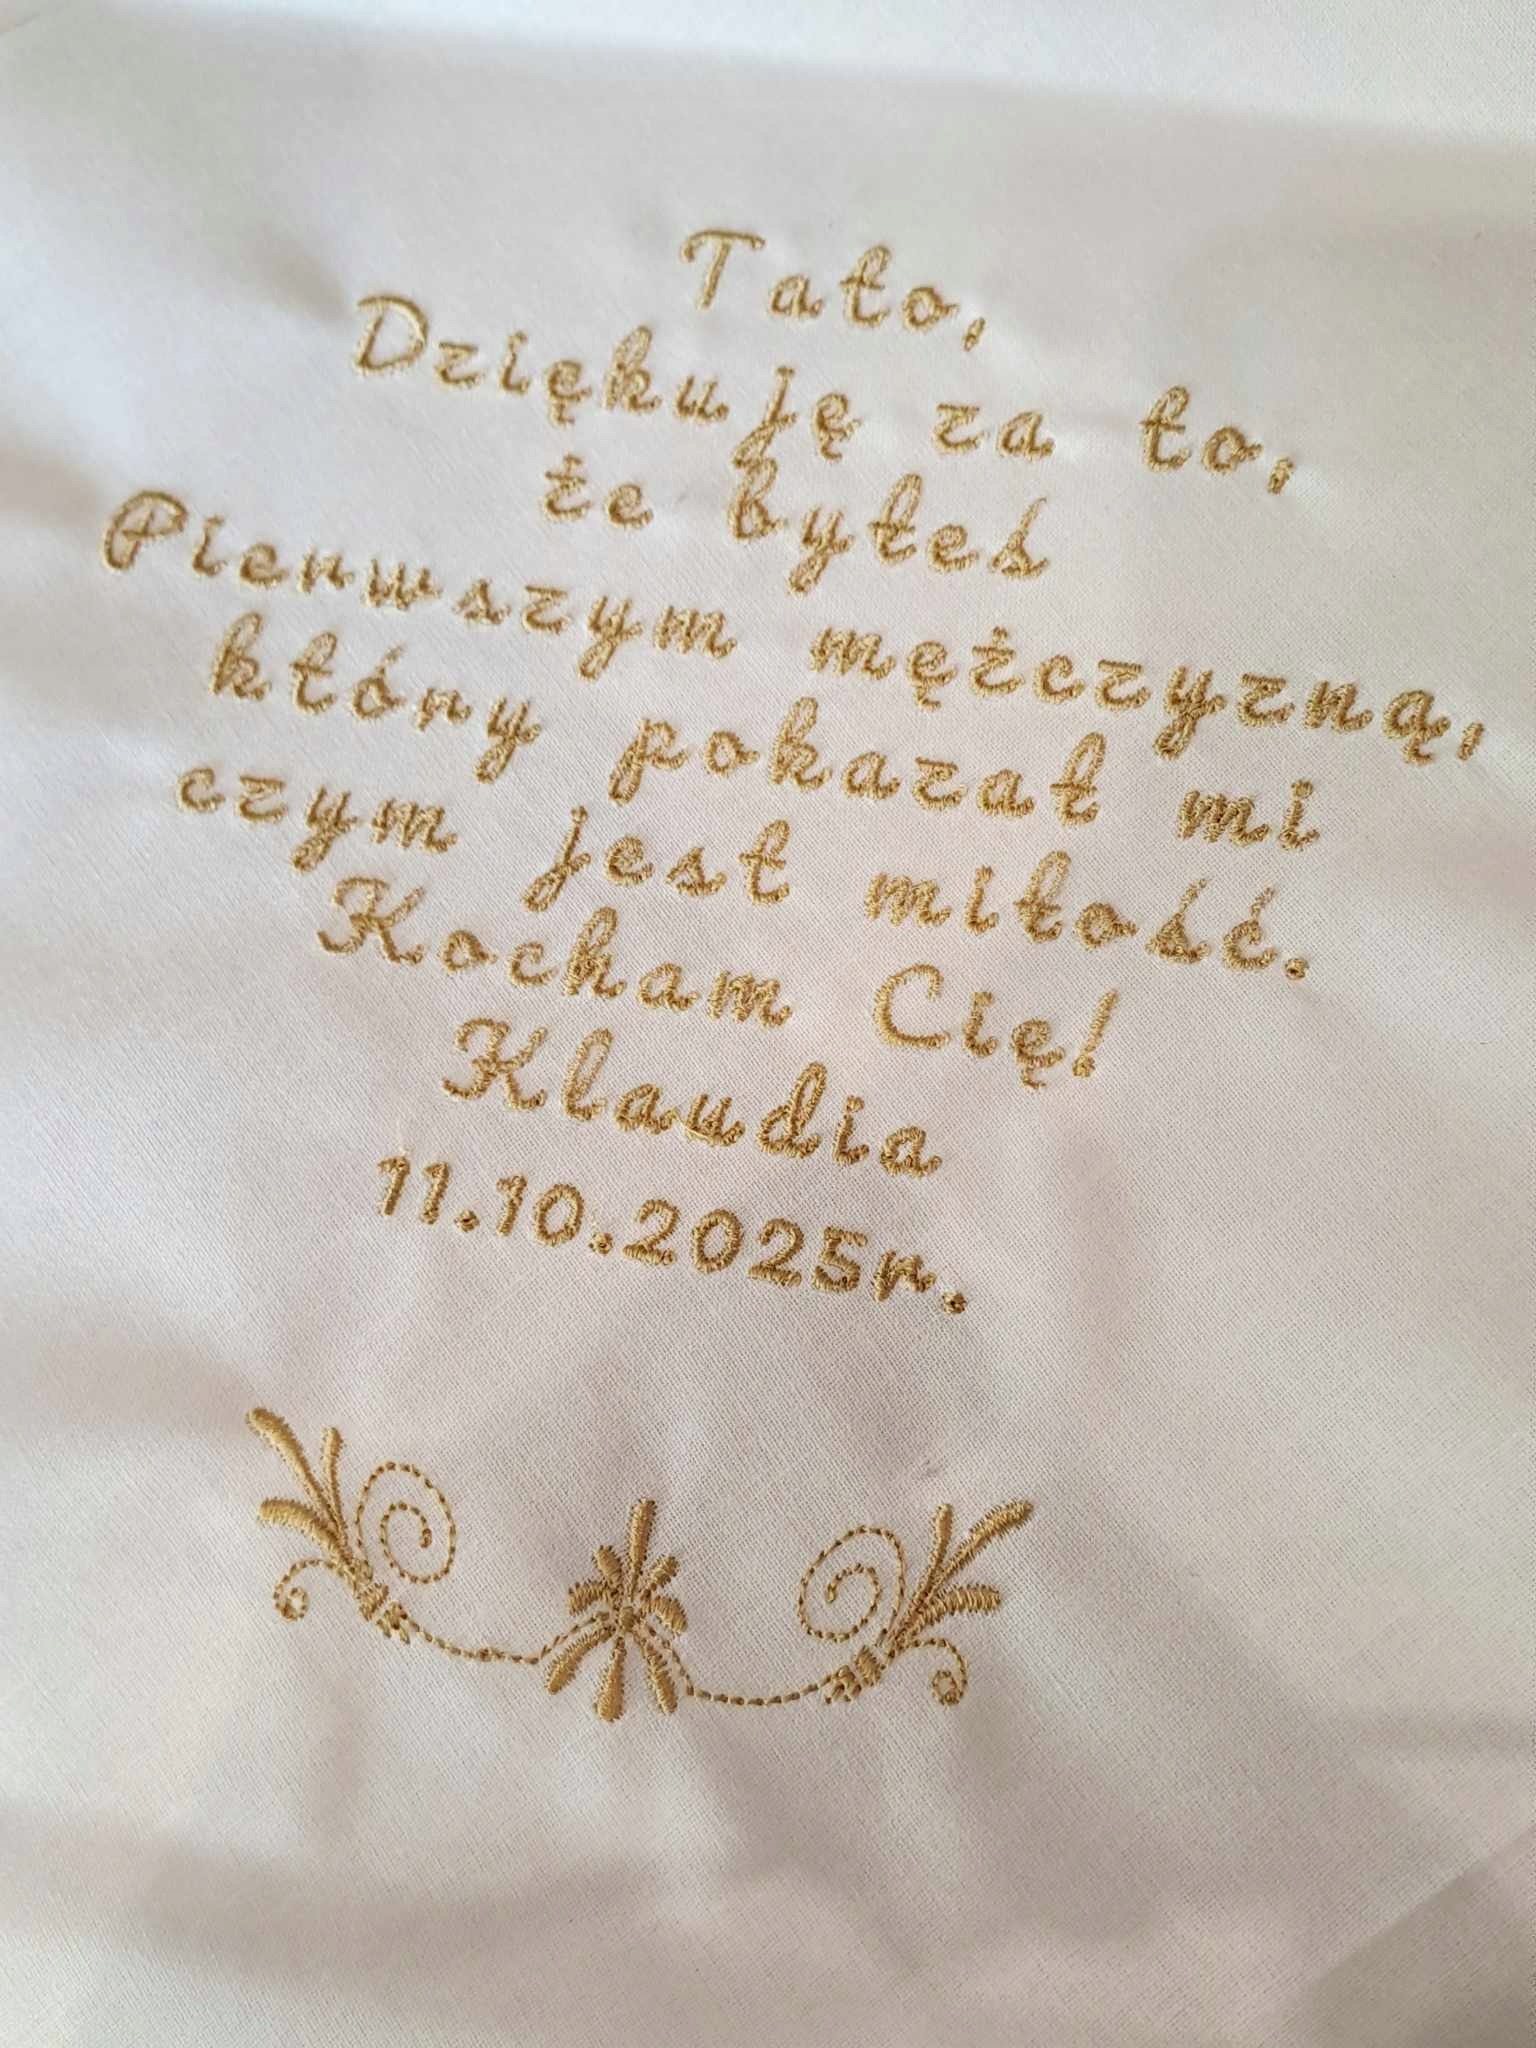 Tato,
Dziękuję za to,
że byłeś
Pierwszym mężczyzną,
który pokazał mi
czym jest miłość.
Kocham Cię!
Klaudia
11.10.2025r.